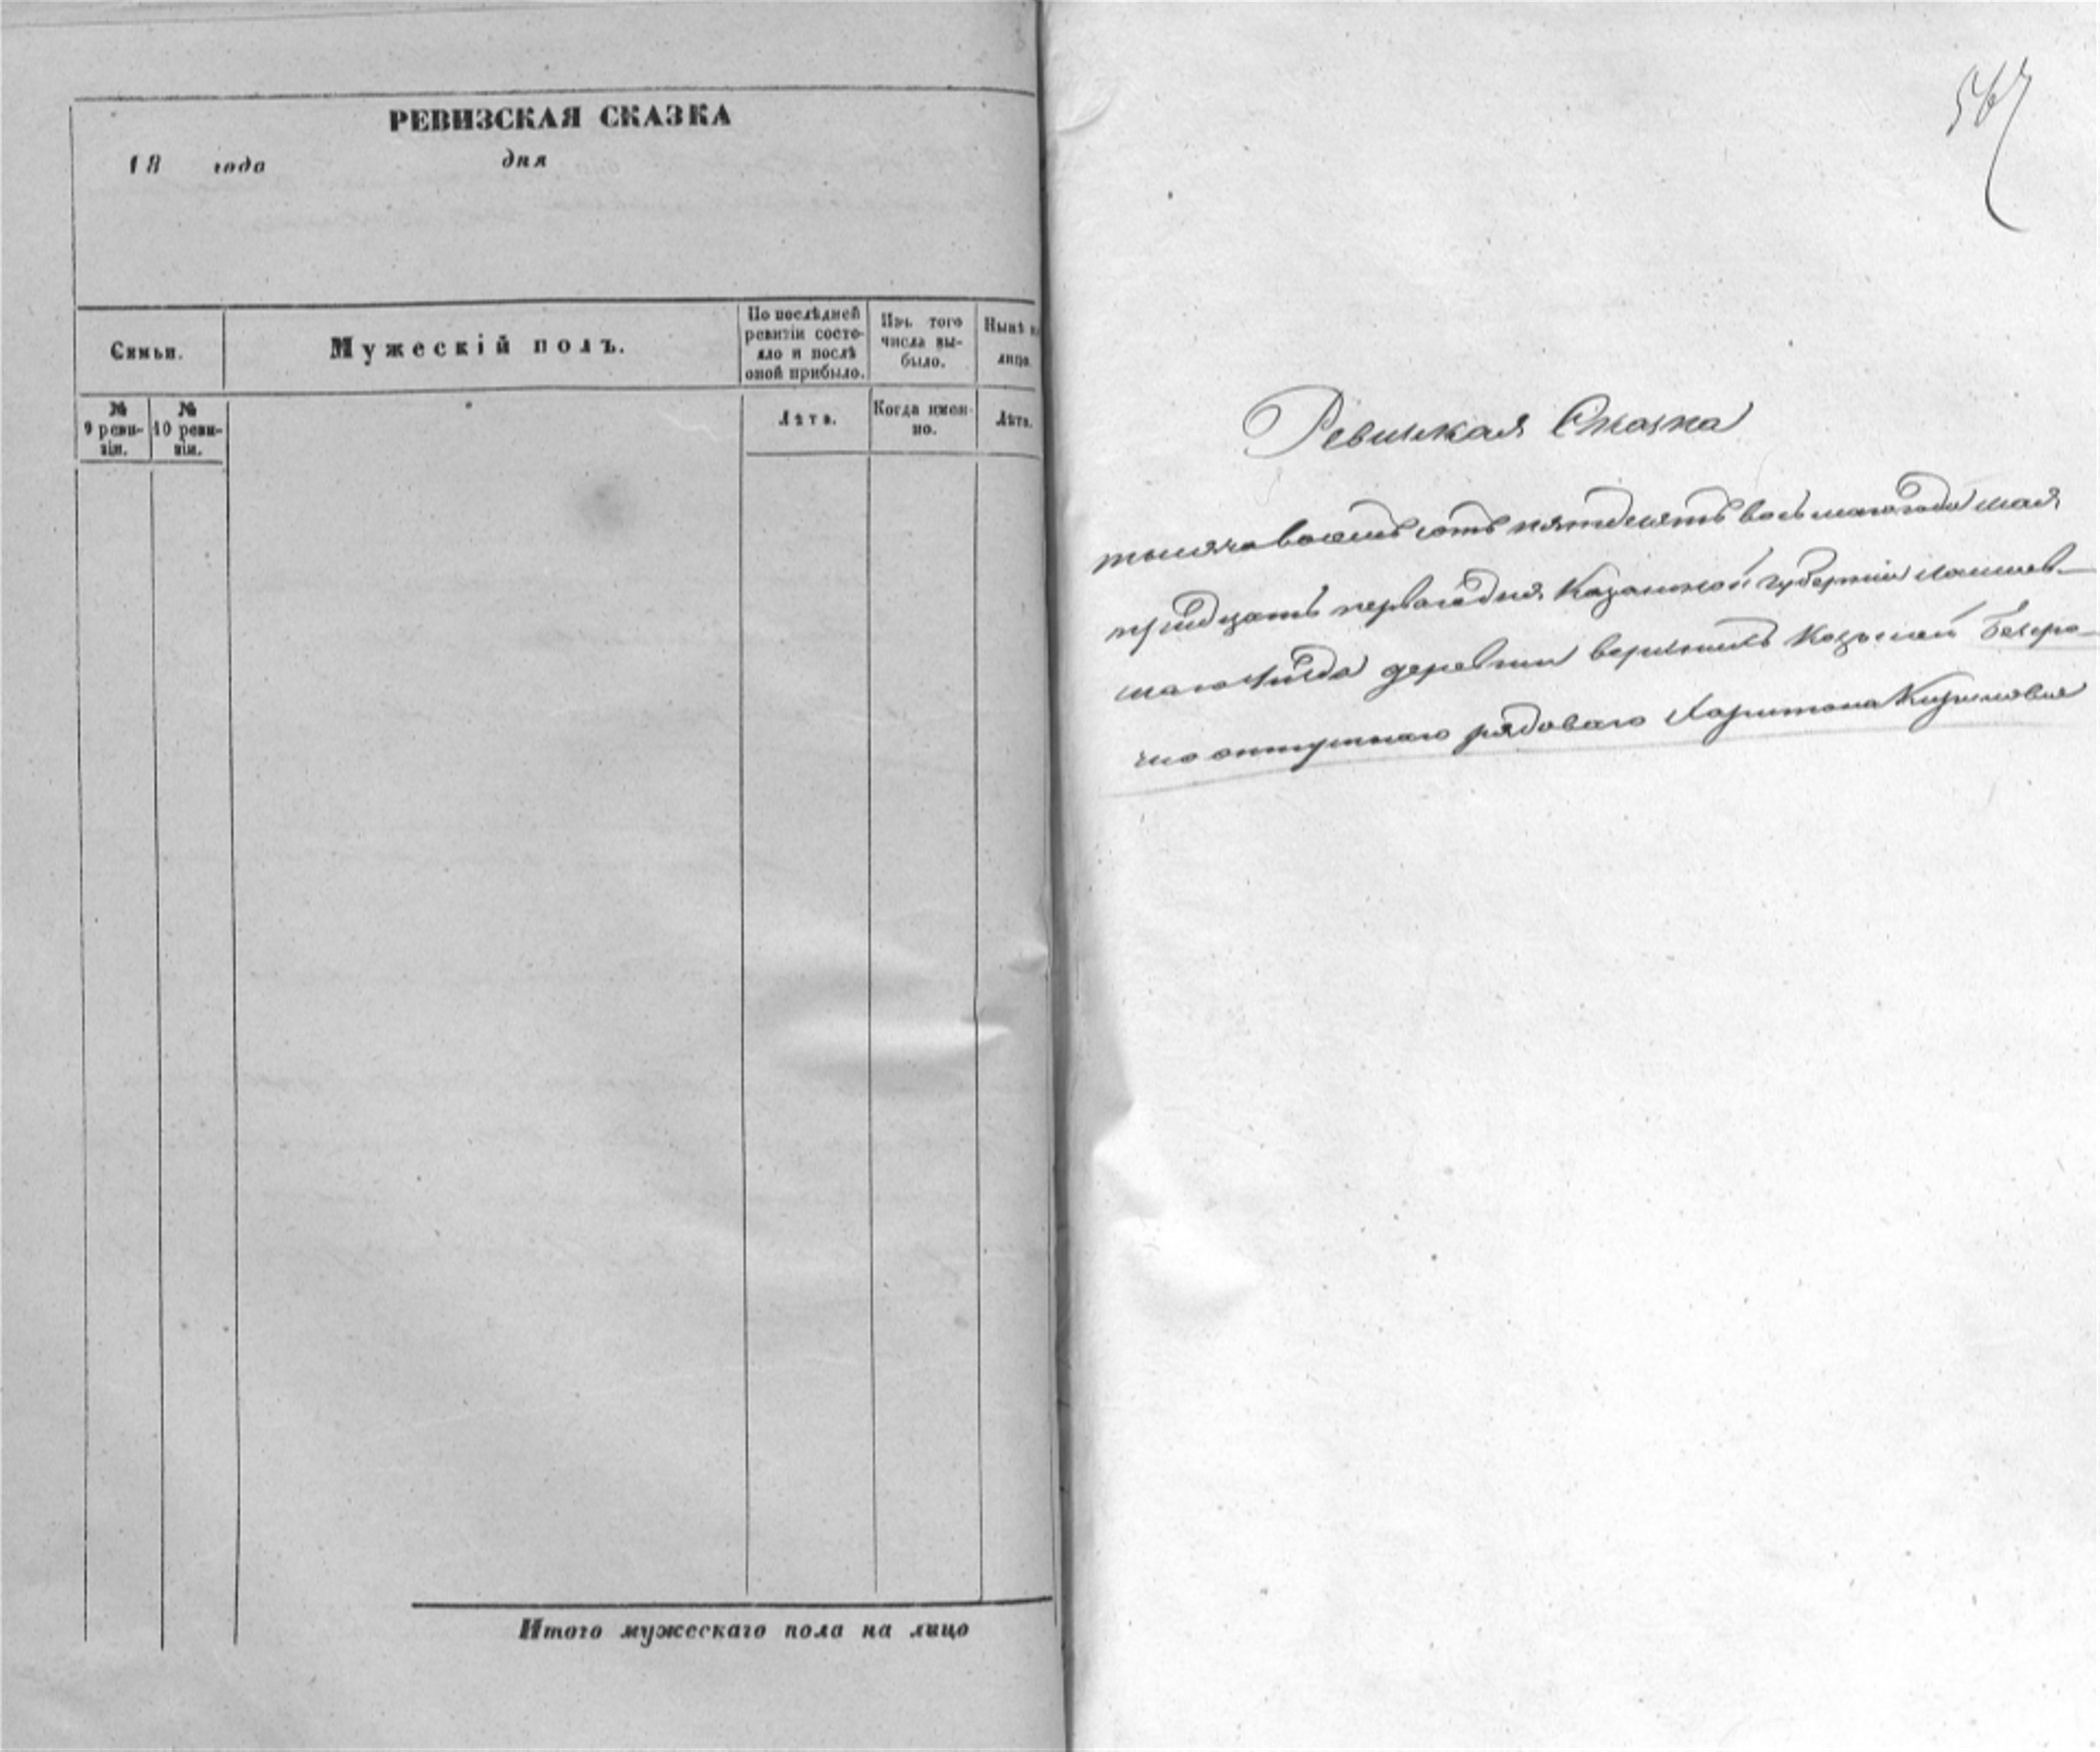 РЕВИЗСКАЯ СКАЗКА
18 года дня
Семьи.
Мужескій полъ.
По послѣдней
ревизіи состо-
яло и послѣ
оной прибыло.
Изъ того
числа вы-
было.
Нынѣ на
лицо.
№
9 реви-
зіи.
№
10 реви-
зіи.
Лѣта.
Когда имен-
но.
Лѣта.
Итого мужескаго пола на лицо
567
Ревизская Сказка
тысяча восемь сотъ пятдесятъ восьмаго года мая
тридцать перваго дня Казанской губерніи Лаишев-
скаго уѣзда деревни
отпускнаго рядоваго Харитона